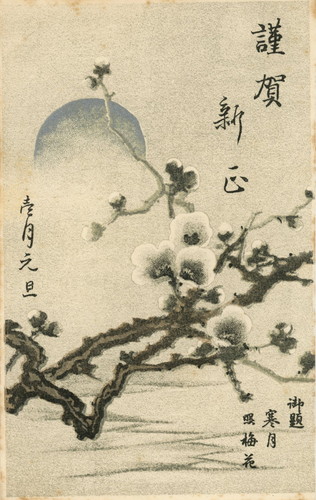 謹賀
新正
壱月元旦
御題
寒月
照梅花